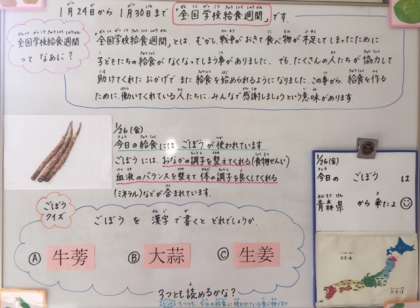 1月24日から 1月30日まで 全国学校給食週間 です。
全国学校給食週間
って なあに？
"全国学校給食週間"とは、むかし戦争がおきて食べ物が不足してしまったために
子どもたちの給食がなくなってしまう事がありました。でも、たくさんの人たちが協力して
助けてくれた おかげで また 給食を始められるようになりました。この事から、給食を作る
ために、働いてくれている人たちに、みんなで感謝しましょうという意味があります
1/26(金)
今日の給食には ごぼう が使われています
ごぼう には、おなかの調子を整えてくれる(食物せんい)
血液のバランスを整えて 体の調子を良くしてくれる
(ミネラル)などが含まれています。
1/26(金)
今日の ごぼう は
青森県 から来たよ
ごぼう
クイズ
ごぼう を 漢字 で書くと どれでしょうか
Ⓐ 牛蒡 Ⓑ 大蒜 Ⓒ 生姜
3つとも読めるかな？